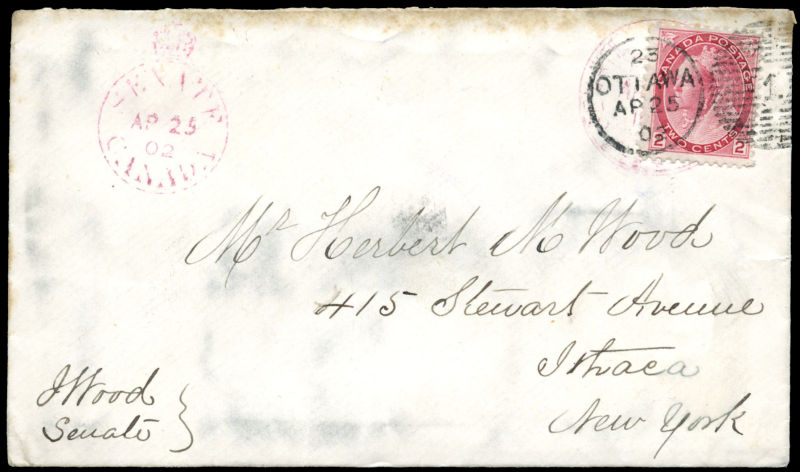 SENATE
AP 25
02
CANADA
23
OTTAWA
AP 25
02
CANADA POSTAGE
2 TWO CENTS 2
1
Mr Herbert M Wood
415 Stewart Avenue
Ithaca
New York
J Wood
Senate